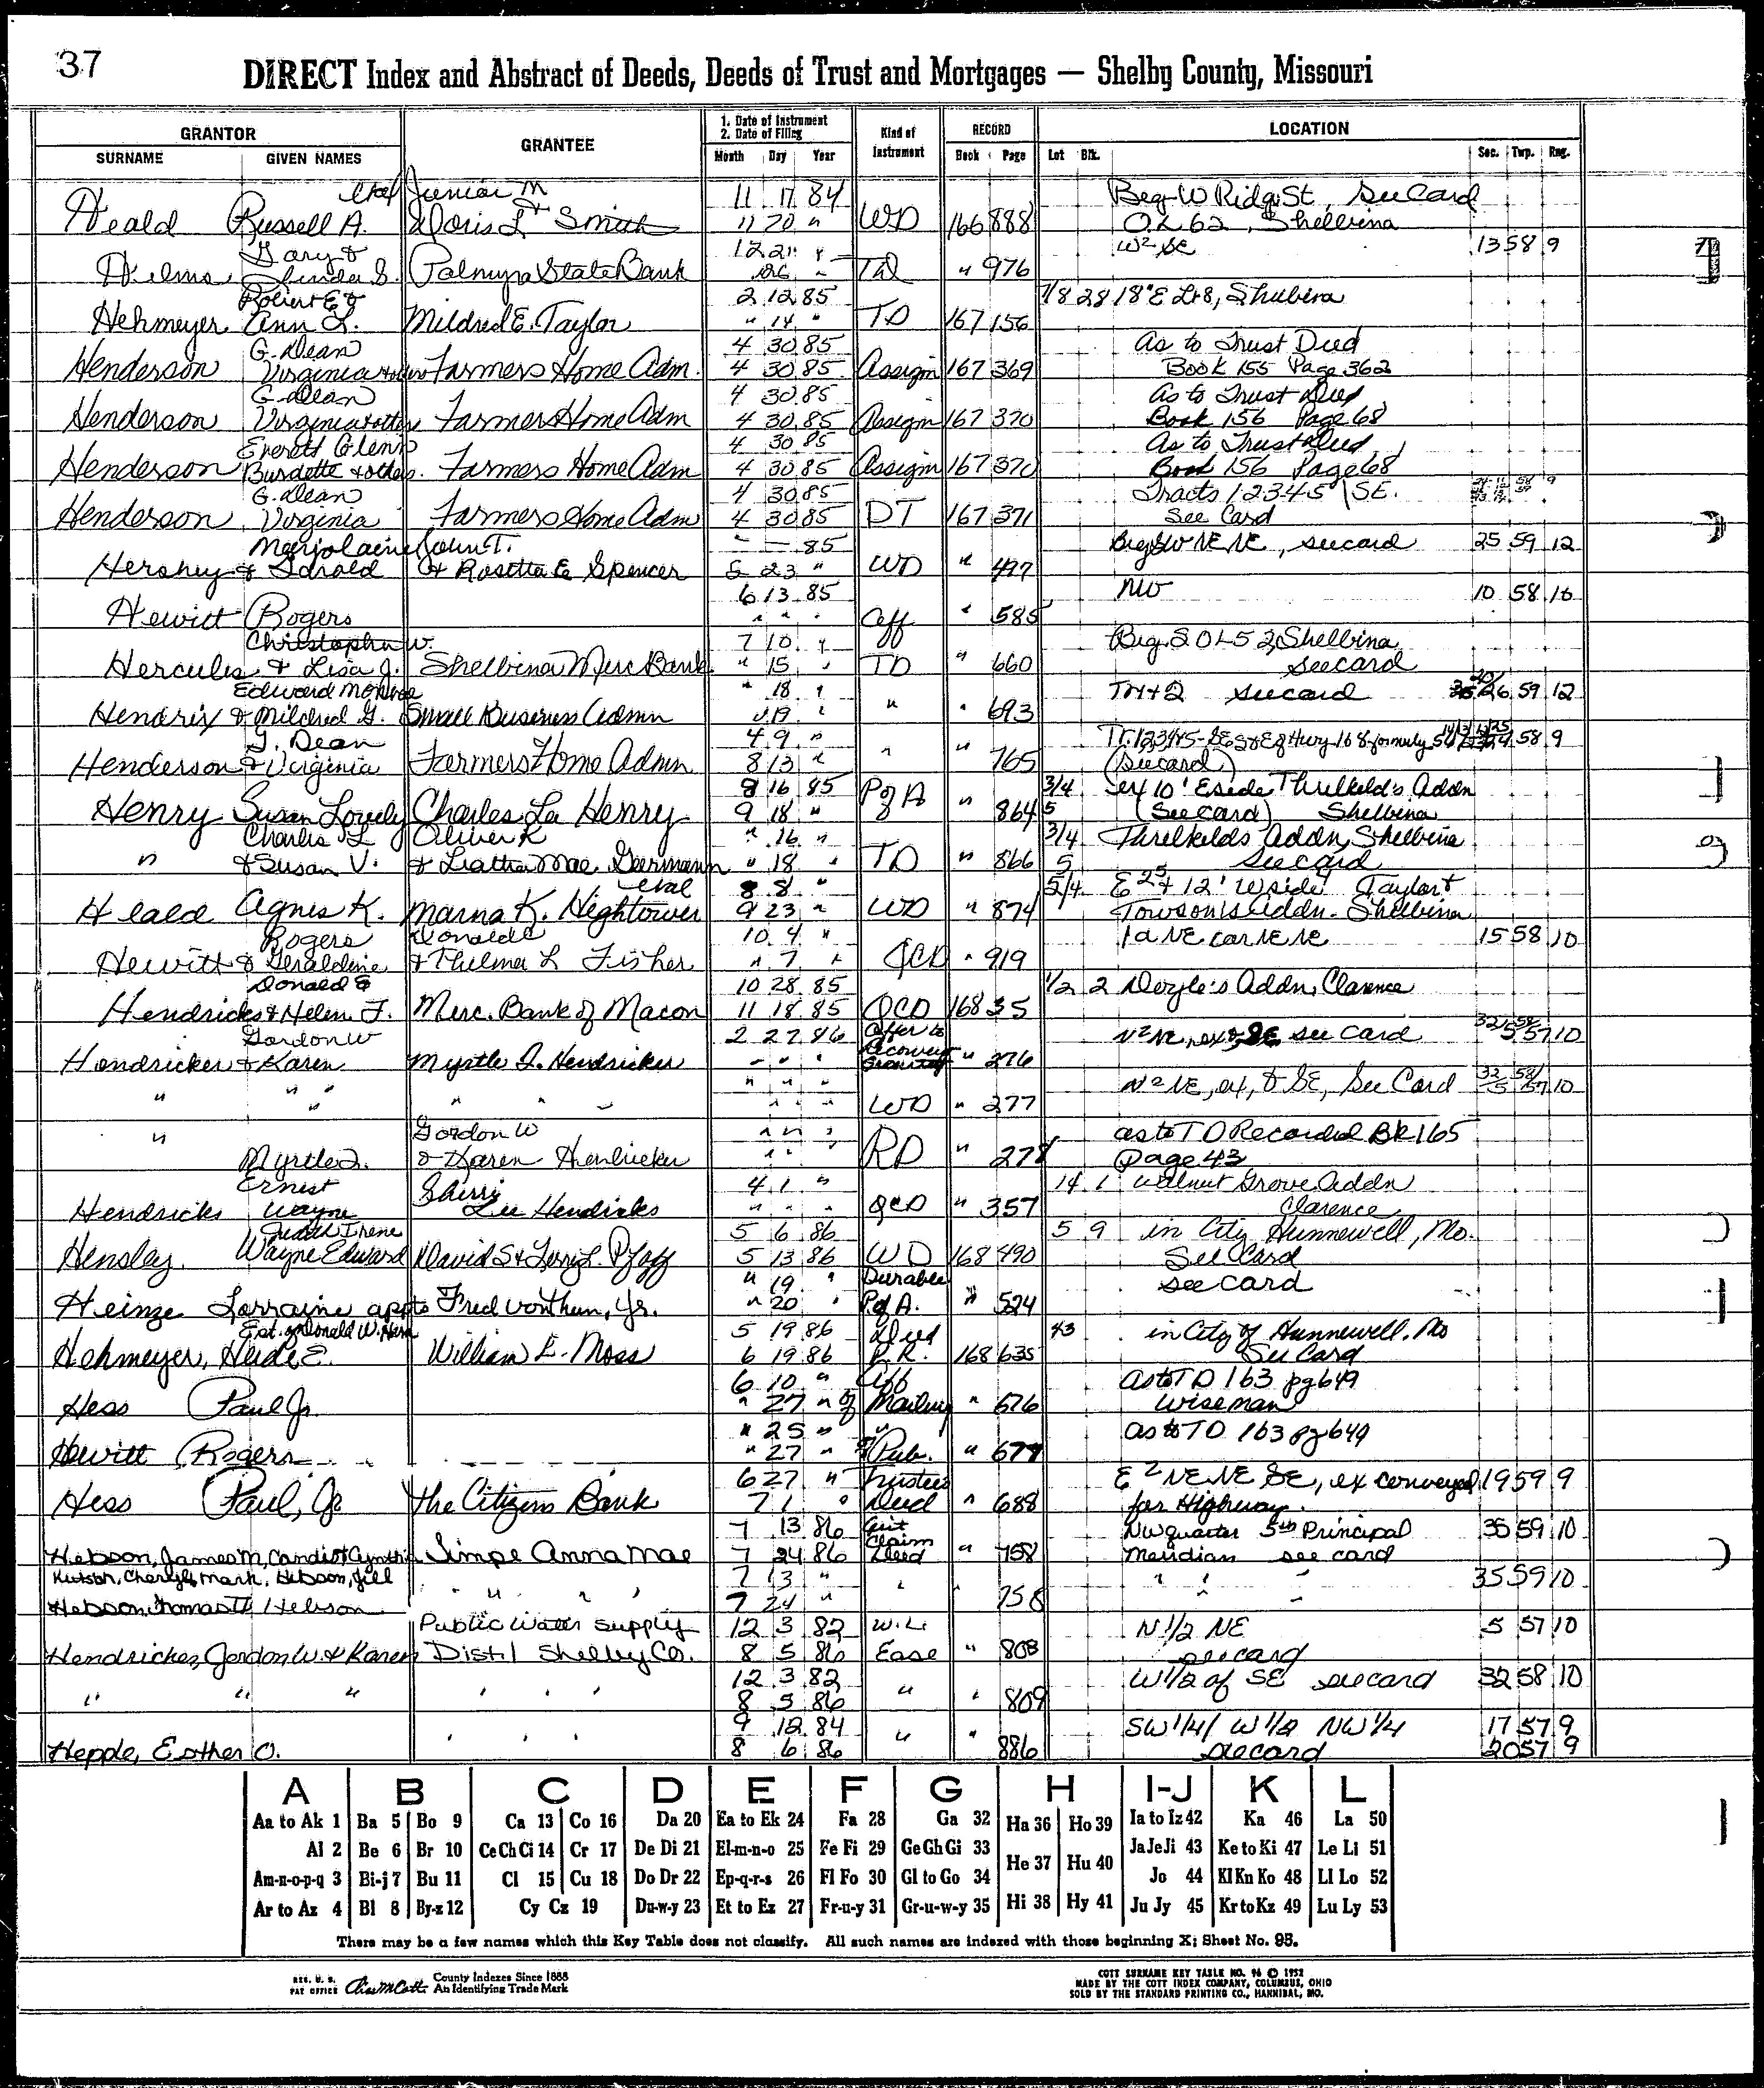 37
DIRECT Index and Abstract of Deeds, Deeds of Trust and Mortgages — Shelby County, Missouri
GRANTOR
SURNAME GIVEN NAMES
GRANTEE
1. Date of Instrument
2. Date of Filing
Month Day Year
Kind of Instrument
RECORD
Book Page
LOCATION
Lot Blk. Sec. Twp. Rng.
etal Junior M 11 17 84 Beg W Ridge St, See Card
Heald Russell A. & Doris L Smith 11 20 " WD 166 888 OL 62, Shelbina
Gary & 12 21 " W² SE 13 58 9
Helms Linda S. Palmyra State Bank 26 " TD " 976
Robert E & 2 12 85 7/8 28 18" E Lt 8, Shelbina
Hehmeyer Ann L. Mildred E. Taylor " 14 " TD 167 156
G. Dean 4 30 85 As to Trust Deed
Henderson Virginia Farmers Home Adm. 4 30 85 Assigm 167 369 Book 155 Page 362
G. Dean 4 30 85 As to Trust Deed
Henderson Virginia & others Farmers Home Adm 4 30 85 Assigm 167 370 Book 156 Page 68
Everett Glenn 4 30 85 As to Trust Deed
Henderson Burdette & others. Farmers Home Adm 4 30 85 Assigm 167 370 Book 156 Page 68
G. Dean 4 30 85 Tracts 1 2 3 4 5 SE.
Henderson Virginia Farmers Home Adm 4 30 85 DT 167 371 See Card
Marjolaine John T. - - 85 Beg SW NE NE, see card 25 59 12
Hershey & Darold & Rosetta E Spencer 5 23 " WD " 497
6 13 85 NW 10 58 10
Hewitt Rogers " " " Aff " 585
Christopher W. 7 10 " Beg. S OL 52, Shelbina
Hercules & Lisa J. Shelbina Merc Bank " 15 " TD " 660 see card
Edward Monroe " 18 " Tr 1 & 2 see card 26 59 12
Hendrix & Mildred G. Small Business Admn " 19 " " " 693
G. Dean 4 9 " 58 9
Henderson & Virginia Farmers Home Admn 8 13 " " " 765 (see card)
8 16 85 3/4 ex 10' E side Threlkeld's Addn
Henry Susan Lovely Charles La Henry 9 18 " P of A " 864 5 (See card) Shelbina
Charles L Oliver K " 16 " 3/4 Threlkelds Addn, Shelbina
" & Susan V. & Leatha Mae Geermann " 18 " TD " 866 5 see card
etal 8 8 " 5/4 E 25 & 12' W side Taylor &
Heald Agnes K. Marna K. Hightower 9 23 " WD " 874 Towson's Addn. Shelbina
Rogers Donald 10 4 " 1a NE cor NE NE 15 58 10
Hewitt & Geraldine & Thelma L Fisher " 7 " QCD " 919
Donald & 10 28 85 1/2 2 Doyle's Addn, Clarence
Hendricks & Helen F. Merc. Bank of Macon 11 18 85 QCD 168 35
Gordon W 2 27 86 Affer to N² NE, SE see card 32 58 5 57 10
Hendricker & Karen Myrtle I. Hendricker - " " " 276
" " " " " " N² NE, ex, & SE, See Card 32 58 5 57 10
" " " " " " WD " 277
" Gordon W " " " as to TD Recorded BK 165
Myrtle I. & Karen Hendricker " " " RD " 278 Page 43
Ernest Sherri 4 1 " 14 1 Walnut Grove Addn
Hendricks Wayne Lee Hendricks " " " QCD " 357 Clarence
Judith Irene 5 6 86 5 9 in City Hunnewell, Mo.
Hensley. Wayne Edward David S & Terry L. Pfaff 5 13 86 WD 168 490 See Card
" 19 " Durable see card
Heinze Lorraine appts Fred vonThun, Jr. " 20 " P of A. " 524
Est. of Donald W. 5 19 86 Deed 43 in City of Hunnewell, Mo
Hehmeyer, Heide E. William L. Moss 6 19 86 P.R. 168 635 See Card
6 10 " Aff as to TD 163 pg 649
Hess Paul Jr. " 27 " of Mailing " 676 Wiseman
" 25 " " as to TD 163 pg 649
Hewitt Rogers " 27 " of Pub. " 677
6 27 " Trustees E² NE NE SE, ex conveyed 19 59 9
Hess Paul, Jr The Citizens Bank 7 1 " Deed " 688 for Highway.
7 13 86 Quit NW quarter 5th Principal 35 59 10
Hebson, James M, Candi & Cynthia Simpe Anna Mae 7 24 86 Claim Deed " 758 Meridian see card
Hutson, Cheryl & Mark, Hebson, Jill " " " " 7 13 " " " " " " 35 59 10
Hebson, Thomas Hebson 7 24 " 758
Public Water Supply 12 3 82 W.L. N 1/2 NE 5 57 10
Hendricker, Gordon W. & Karen Dist. 1 Shelby Co. 8 5 86 Ease " 808 see card
12 3 82 W 1/2 of SE see card 32 58 10
" " " " " " 8 5 86 " " 809
9 12 84 SW 1/4 / W 1/2 NW 1/4 17 57 9
Hepple, Esther O. " " " 8 6 86 " " 886 see card 20 57 9
A B C D E F G H I-J K L
Aa to Ak 1 Ba 5 Bo 9 Ca 13 Co 16 Da 20 Ea to Ek 24 Fa 28 Ga 32 Ha 36 Ho 39 Ia to Iz 42 Ka 46 La 50
Al 2 Be 6 Br 10 Ce Ch Ci 14 Cr 17 De Di 21 El-m-n-o 25 Fe Fi 29 Ge Gh Gi 33 He 37 Hu 40 Ja Je Ji 43 Ke to Ki 47 Le Li 51
Am-n-o-p-q 3 Bi-j 7 Bu 11 Cl 15 Cu 18 Do Dr 22 Ep-q-r-s 26 Fl Fo 30 Gl to Go 34 Jo 44 Kl Kn Ko 48 Ll Lo 52
Ar to Az 4 Bl 8 By-z 12 Cy Cz 19 Du-w-y 23 Et to Ez 27 Fr-u-y 31 Gr-u-w-y 35 Hi 38 Hy 41 Ju Jy 45 Kr to Kz 49 Lu Ly 53
There may be a few names which this Key Table does not classify. All such names are indexed with those beginning X; Sheet No. 95.
REG. U. S. PAT OFFICE
County Indexes Since 1888
An Identifying Trade Mark
COTT SURNAME KEY TABLE NO. 96 © 1952
MADE BY THE COTT INDEX COMPANY, COLUMBUS, OHIO
SOLD BY THE STANDARD PRINTING CO., HANNIBAL, MO.